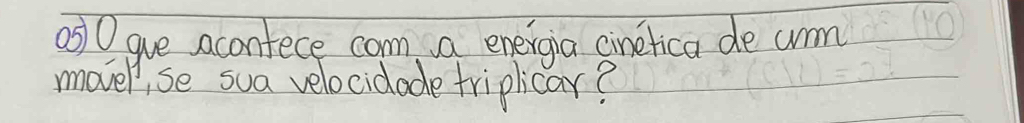 05) O que acontece com a energia cinética de um
móvel, se sua velocidade triplicar?